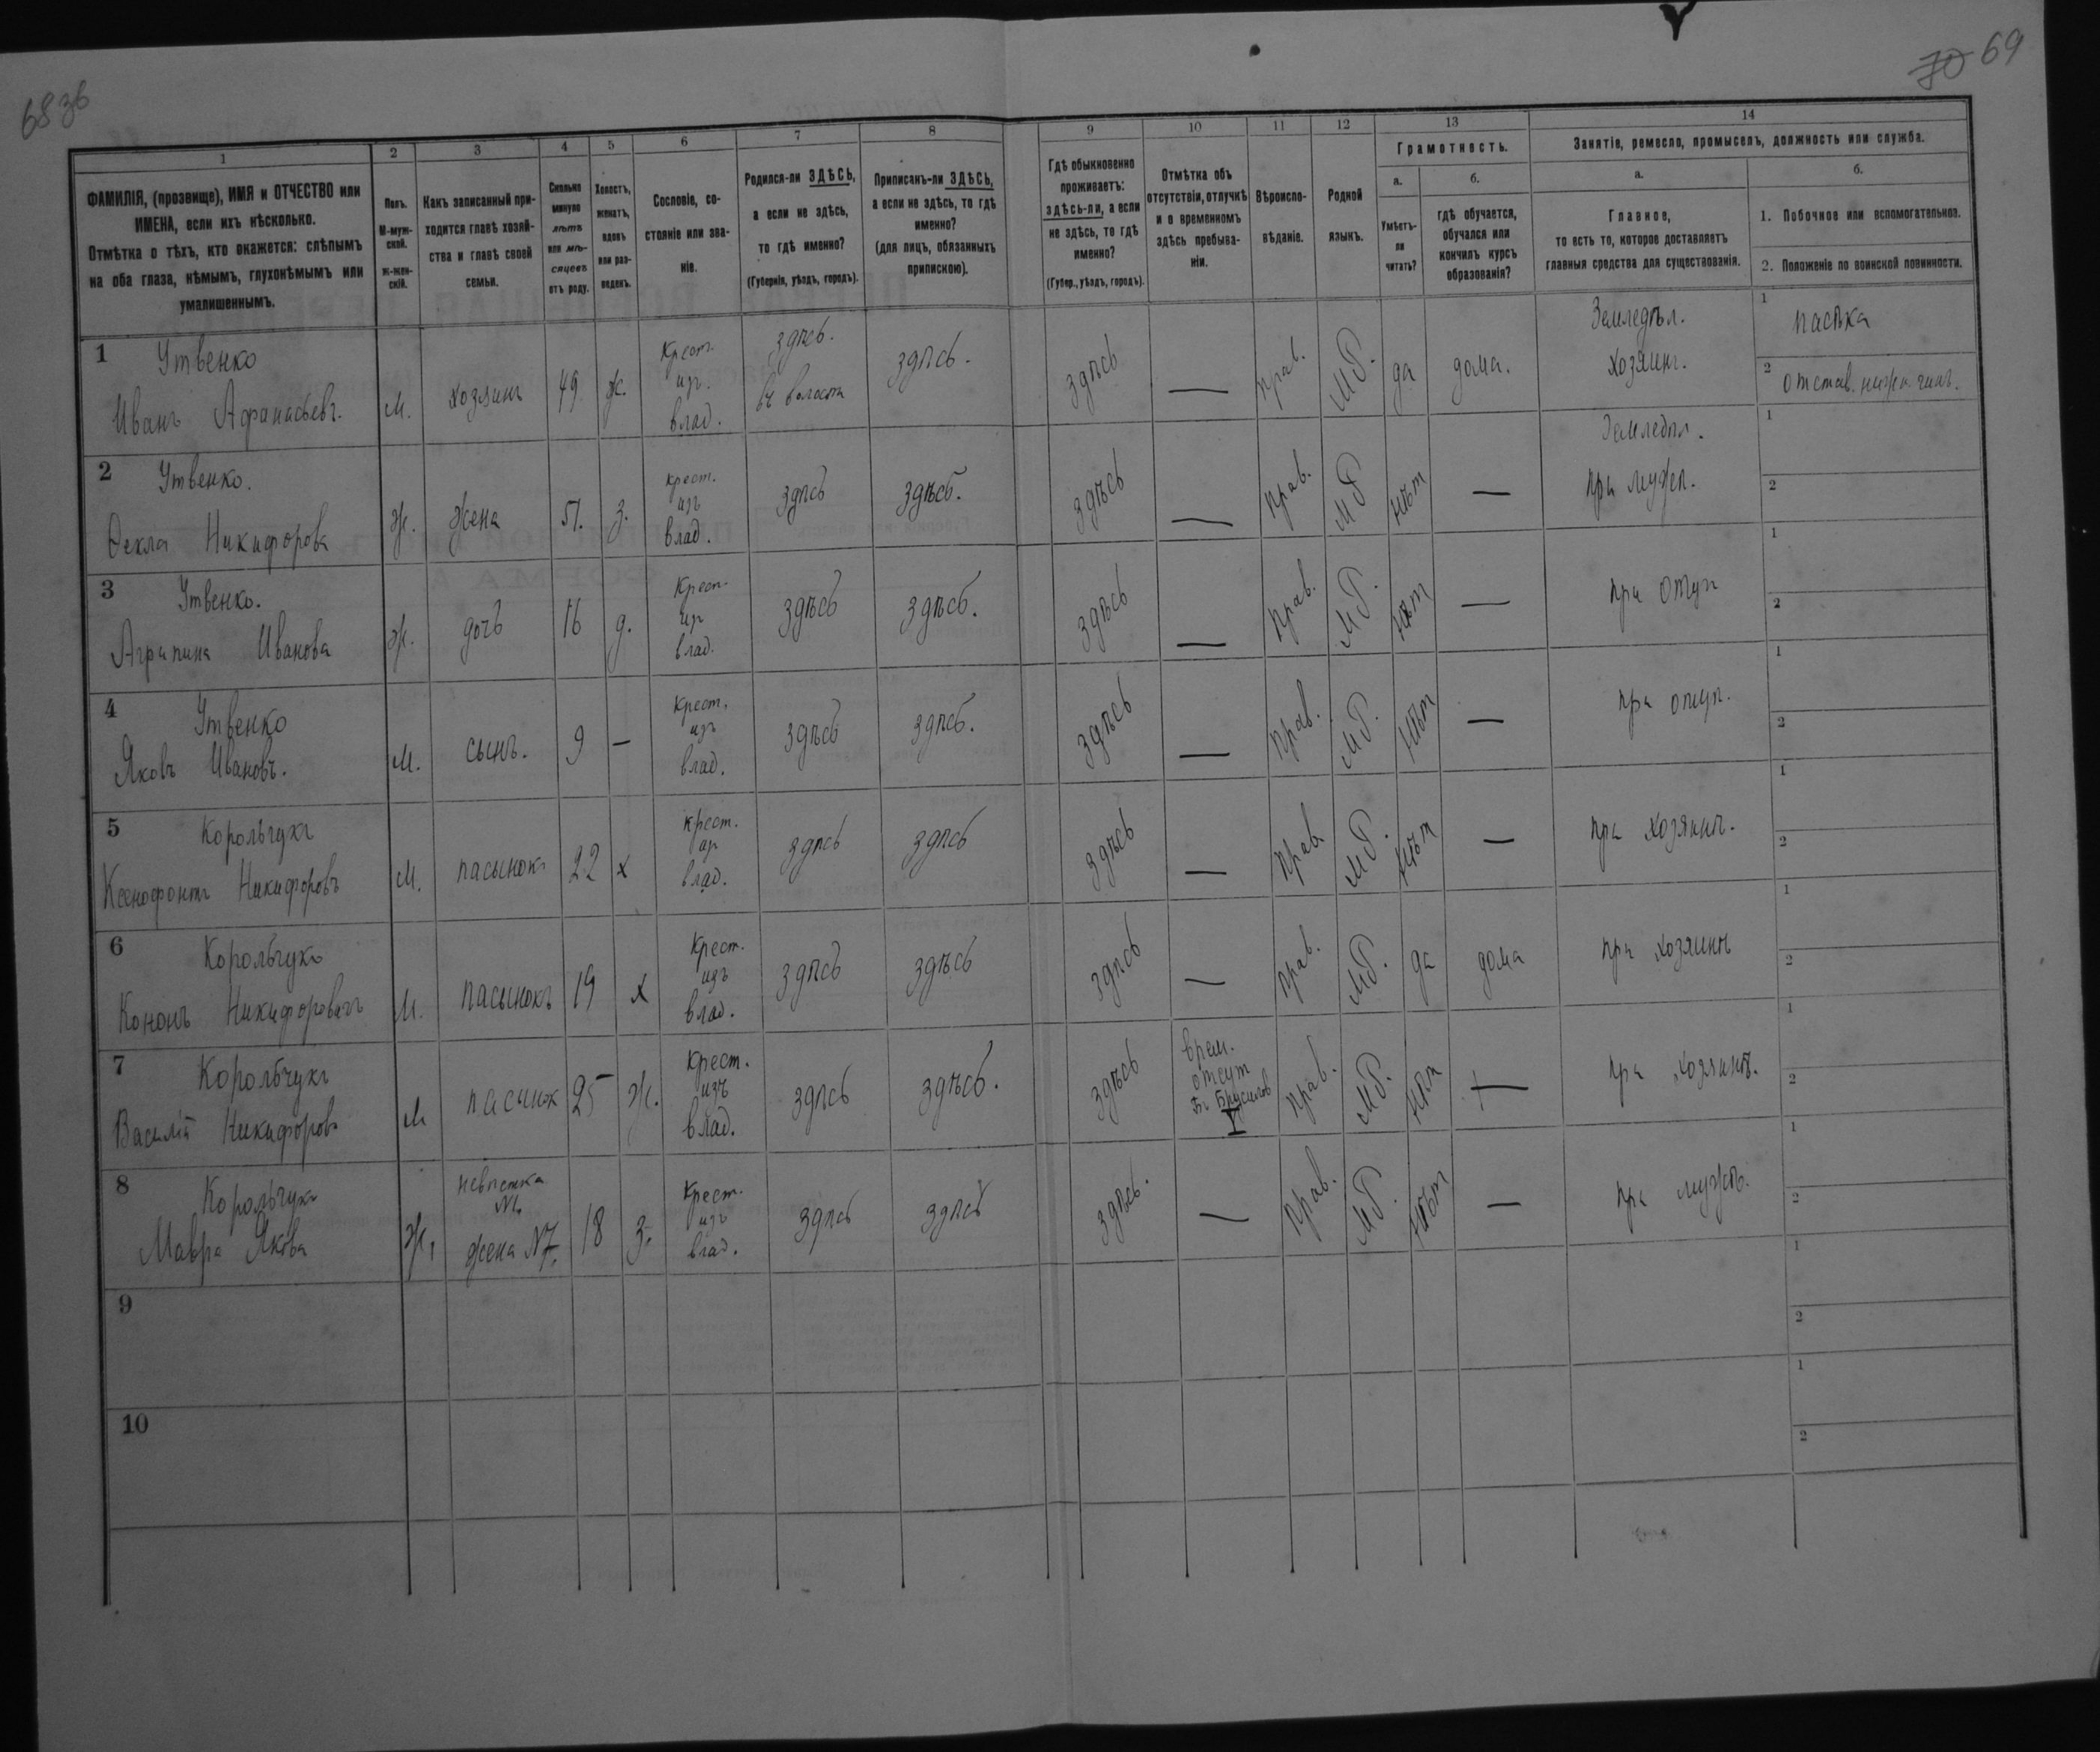 68 зв
70 69
1
2
3
4
5
6
7
8
9
10
11
12
13
14
ФАМИЛІЯ, (прозвище), ИМЯ и ОТЧЕСТВО или
ИМЕНА, если ихъ нѣсколько.
Отмѣтка о тѣхъ, кто окажется: слѣпымъ
на оба глаза, нѣмымъ, глухонѣмымъ или
умалишеннымъ.
Полъ.
М-муж-
ской.
ж-жен-
скій.
Какъ записанный при-
ходится главѣ хозяй-
ства и главѣ своей
семьи.
Сколько
минуло
лѣтъ
или мѣ-
сяцевъ
отъ роду.
Холостъ,
женатъ,
вдовъ
или раз-
веденъ.
Сословіе, со-
стояніе или зва-
ніе.
Родился-ли ЗДѢСЬ,
а если не здѣсь,
то гдѣ именно?
(Губернія, уѣздъ, городъ).
Приписанъ-ли ЗДѢСЬ,
а если не здѣсь, то гдѣ
именно?
(для лицъ, обязанныхъ
припискою).
Гдѣ обыкновенно
проживаетъ:
здѣсь-ли, а если
не здѣсь, то гдѣ
именно?
(Губер., уѣздъ, городъ).
Отмѣтка объ
отсутствіи, отлучкѣ
и о временномъ
здѣсь пребыва-
ніи.
Вѣроиспо-
вѣданіе.
Родной
языкъ.
Грамотность.
а.
Умѣетъ-
ли
читать?
б.
гдѣ обучается,
обучался или
кончилъ курсъ
образованія?
Занятіе, ремесло, промыселъ, должность или служба.
а.
Главное,
то есть то, которое доставляетъ
главныя средства для существованія.
б.
1. Побочное или вспомогательное.
2. Положеніе по воинской повинности.
1
Утвенко
Иванъ Афанасьевъ.
м.
хозяинъ
49
ж.
Крест.
изъ
влад.
здѣсь.
въ волости
здѣсь.
здѣсь
—
прав.
МР.
да
дома.
Земледѣл.
хозяинъ.
1 пасѣка
2 отстав. нижн. чинъ.
2
Утвенко.
Ѳекла Никифорова
ж.
жена
51.
з.
крест.
изъ
влад.
здѣсь
здѣсь.
здѣсь
—
прав.
МР
нѣтъ
—
Земледѣл.
при мужѣ.
1
2
3
Утвенко.
Агрипина Иванова
ж.
дочь
16
д.
Крест.
изъ
влад.
здѣсь
здѣсь.
здѣсь
—
прав.
МР.
нѣтъ
—
при отцѣ
1
2
4
Утвенко
Яковъ Ивановъ.
м.
сынъ.
9
—
Крест.
изъ
влад.
здѣсь
здѣсь.
здѣсь
—
прав.
МР.
нѣтъ
—
при отцѣ.
1
2
5
Корольчукъ
Ксенофонтъ Никифоровъ
м.
пасынокъ
22
х
крест.
изъ
влад.
здѣсь
здѣсь
здѣсь
—
прав
МР.
нѣтъ
—
при хозяинѣ.
1
2
6
Корольчукъ
Кононъ Никифоровичъ
м.
пасынокъ
19
х
Крест.
изъ
влад.
здѣсь
здѣсь
здѣсь
—
прав.
МР.
да
дома
при хозяинѣ
1
2
7
Корольчукъ
Василій Никифоровъ
м
пасынок
25
ж.
крест.
изъ
влад.
здѣсь
здѣсь.
здѣсь
врем.
отсут
въ Брусилов
прав.
МР.
нѣтъ
—
при хозяинѣ.
1
2
8
Корольчукъ
Мавра Якова
ж.
невѣстка
№1.
жена №7.
18
з.
Крест.
изъ
влад.
здѣсь
здѣсь
здѣсь.
—
прав.
МР.
нѣтъ
—
при мужѣ.
1
2
9
1
2
10
1
2